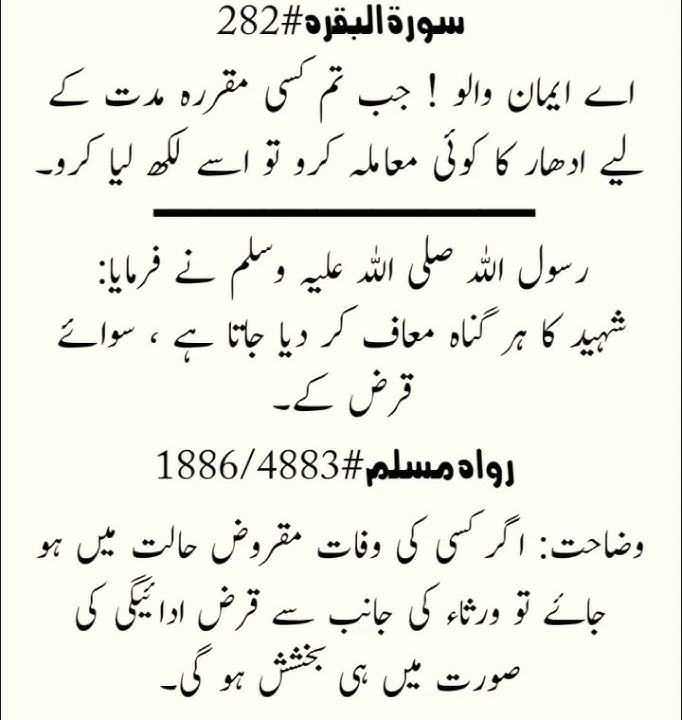 سورۃ البقرہ#282
اے ایمان والو ! جب تم کسی مقررہ مدت کے
لیے ادھار کا کوئی معاملہ کرو تو اسے لکھ لیا کرو۔
رسول اللہ صلی اللہ علیہ وسلم نے فرمایا:
شہید کا ہر گناہ معاف کر دیا جاتا ہے ، سوائے
قرض کے۔
رواہ مسلم#1886/4883
وضاحت: اگر کسی کی وفات مقروض حالت میں ہو
جائے تو ورثاء کی جانب سے قرض ادائیگی کی
صورت میں ہی بخشش ہو گی۔